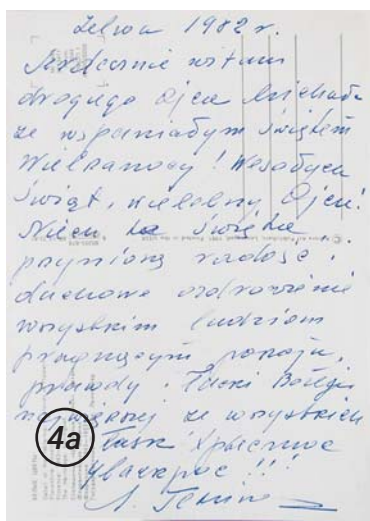 Zelwa 1982 r.
Serdecznie witam
drogiego Ojca Michała
ze wspaniałym świętem
Wielkanocy! Wesołych
Świąt, wielebny Ojcu!
Niech te święta
przyniosą radość i
duchowe ozdrowienie
wszystkim ludziom
pragnącym pokoju,
prawdy i Łaski Bożej
najwiękrzej ze wszystkich
4a
Łask
!!!